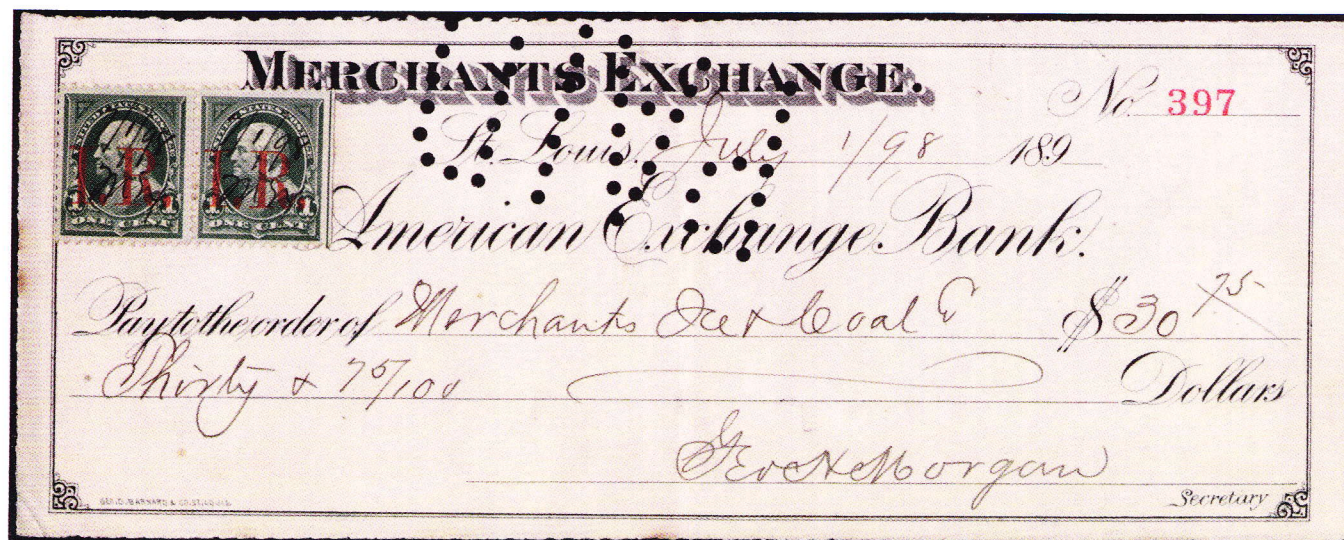 MERCHANTS EXCHANGE.
No. 397
St. Louis, July 1/98 189
I.R. I.R.
ONE CENT ONE CENT
American Exchange Bank.
Pay to the order of Merchants Ice & Coal Co $30 75
Thirty & 75/100 Dollars
Geo H Morgan
Secretary
GEO. D. BARNARD & CO. ST. LOUIS.